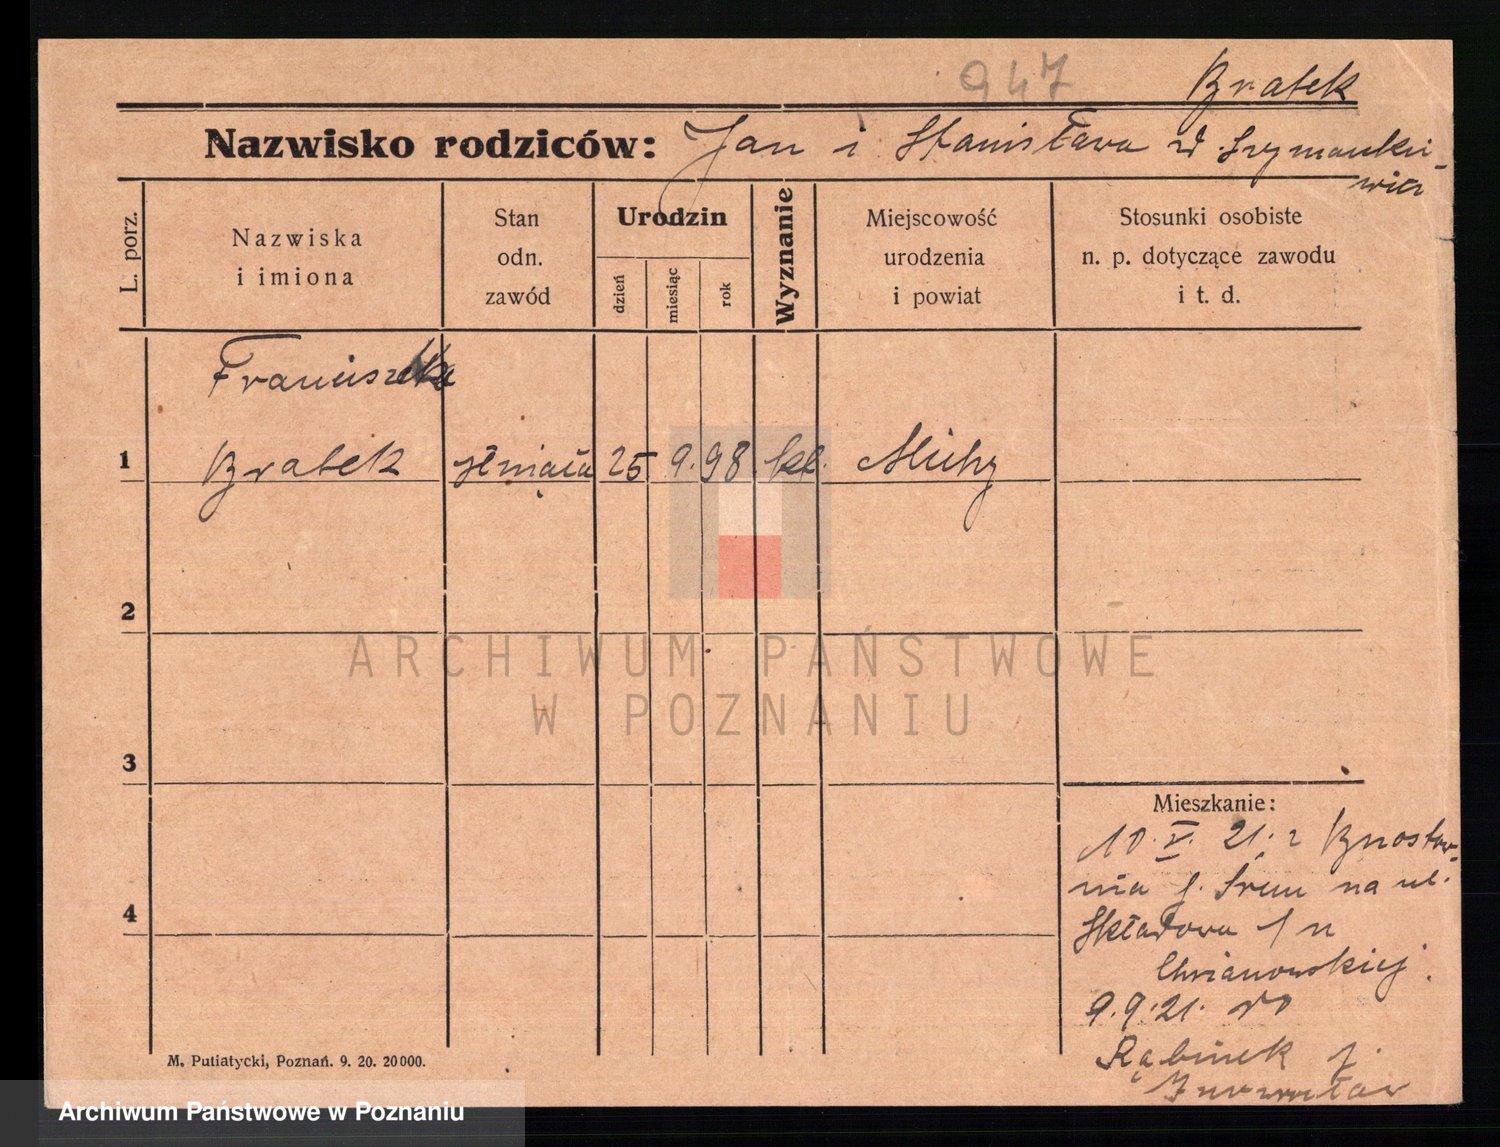 947
Bratek
Nazwisko rodziców: Jan i Stanisława z d. Szymankie-
wicz
L. porz.
Nazwiska
i imiona
Stan
odn.
zawód
Urodzin
dzień
miesiąc
rok
Wyznanie
Miejscowość
urodzenia
i powiat
Stosunki osobiste
n. p. dotyczące zawodu
i t. d.
Franciszka
1 Bratek służąca 25 9. 98 kt. Michy
2
ARCHIWUM PAŃSTWOWE
W POZNANIU
3
Mieszkanie:
10. V. 21. z Bnostow-
nia p. Śrem na ul.
4
Składowa 1 u
Chrzanowskiej.
9.9.21. do
Rąbinek p.
Inowrocław
M. Putiatycki, Poznań. 9. 20. 20000.
Archiwum Państwowe w Poznaniu